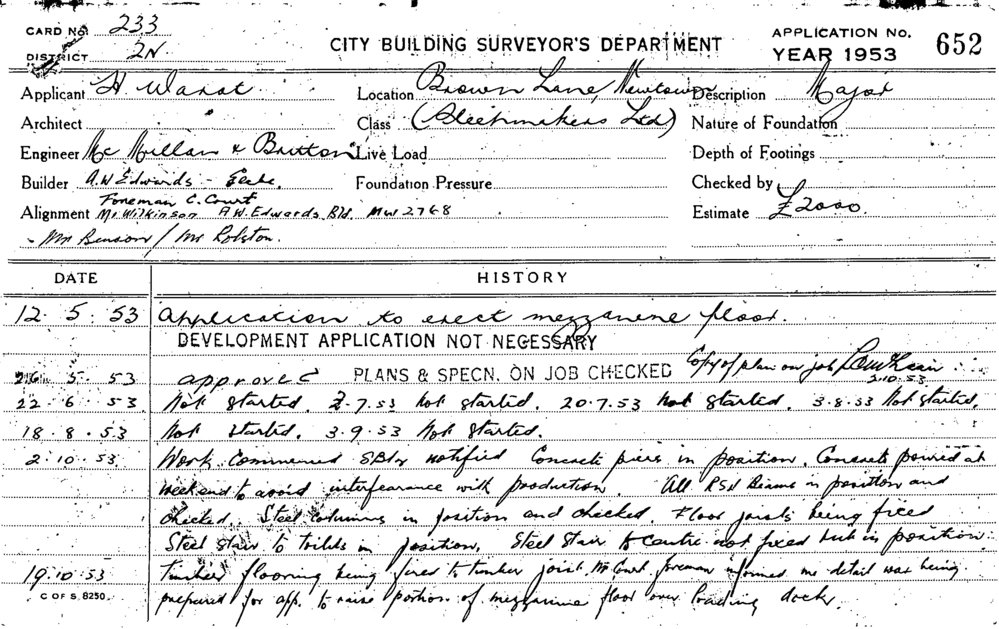 CARD No. 233
DISTRICT 2N
CITY BUILDING SURVEYOR'S DEPARTMENT
APPLICATION No. 652
YEAR 1953
Applicant H Warat Location Brown Lane, Newtown Description Major
Architect Class (Sleepmakers Ltd) Nature of Foundation
Engineer Mc Millan & Britton Live Load Depth of Footings
Builder A.W Edwards - Foundation Pressure Checked by
Foreman C. Court
Alignment Mr Wilkinson A.W. Edwards. Bld. MW 2768 Estimate £2000.
Mr Benson / Mr Rolston.
DATE HISTORY
12. 5. 53 Application to erect mezzanine floor.
DEVELOPMENT APPLICATION NOT NECESSARY
26. 5. 53 approved PLANS & SPECN. ON JOB CHECKED Copy of plan on job
2.10.53
22. 6. 53 Not started. 2.7.53 Not started. 20.7.53 Not started. 3.8.53 Not started.
18. 8. 53 Not started. 3.9.53 Not Started.
2. 10. 53 Work commenced notified Concrete piers in position. Concrete poured at
weekend to avoid interfearance with production. All RSJ Beams in position and
checked. Steel columns in position and checked. Floor joists being fixed
Steel stair to toilets in position. Steel Stair to centre not fixed but in position.
19. 10. 53 Timber flooring being fixed to timber joist. Mr Court foreman informed me detail was being
C OF S. 8250.
prepared for app. to raise portion of mezzanine floor over loading dock.